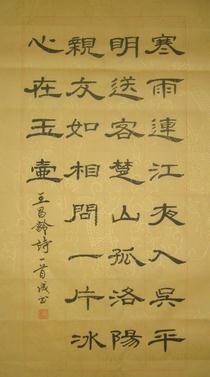 寒雨連江夜入吳平
明送客楚山孤洛陽
親友如相問一片冰
心在玉壺
王昌齡詩一首